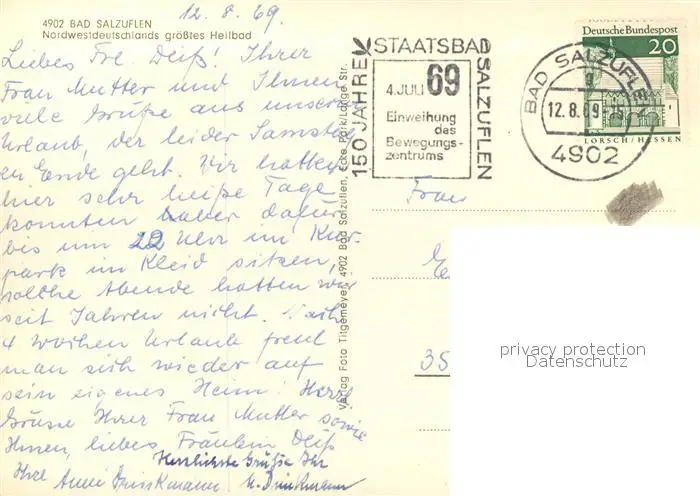 12. 8. 69.
4902 BAD SALZUFLEN
Nordwestdeutschlands größtes Heilbad
Liebes Frl. Deiß! Ihrer
Frau Mutter und Ihnen
viele Grüße aus unserem
Urlaub, der leider Samstag
zu Ende geht. Wir hatten
hier sehr heiße Tage
konnten daher dafür
bis um 22 Uhr im Kur-
park im Kleid sitzen,
solche Abende hatten wir
seit Jahren nicht. Nach
4 Wochen Urlaub freut
man sich wieder auf
sein eigenes Heim. Herzl.
Grüsse Ihrer Frau Mutter sowie
Ihnen, liebes Fräulein Deiß
Herzlichste Grüße Ihr
Ihre Anni Drinkmann
Verlag Foto Tilgemeyer, 4902 Bad Salzuflen, Ecke Park/Lange Str.
150 JAHRE
STAATSBAD
SALZUFLEN
4. JULI 69
Einweihung
des
Bewegungs-
zentrums
BAD SALZUFLEN
12.8.69
4902
Deutsche Bundespost
20
LORSCH/HESSEN
Frau
35
privacy protection
Datenschutz